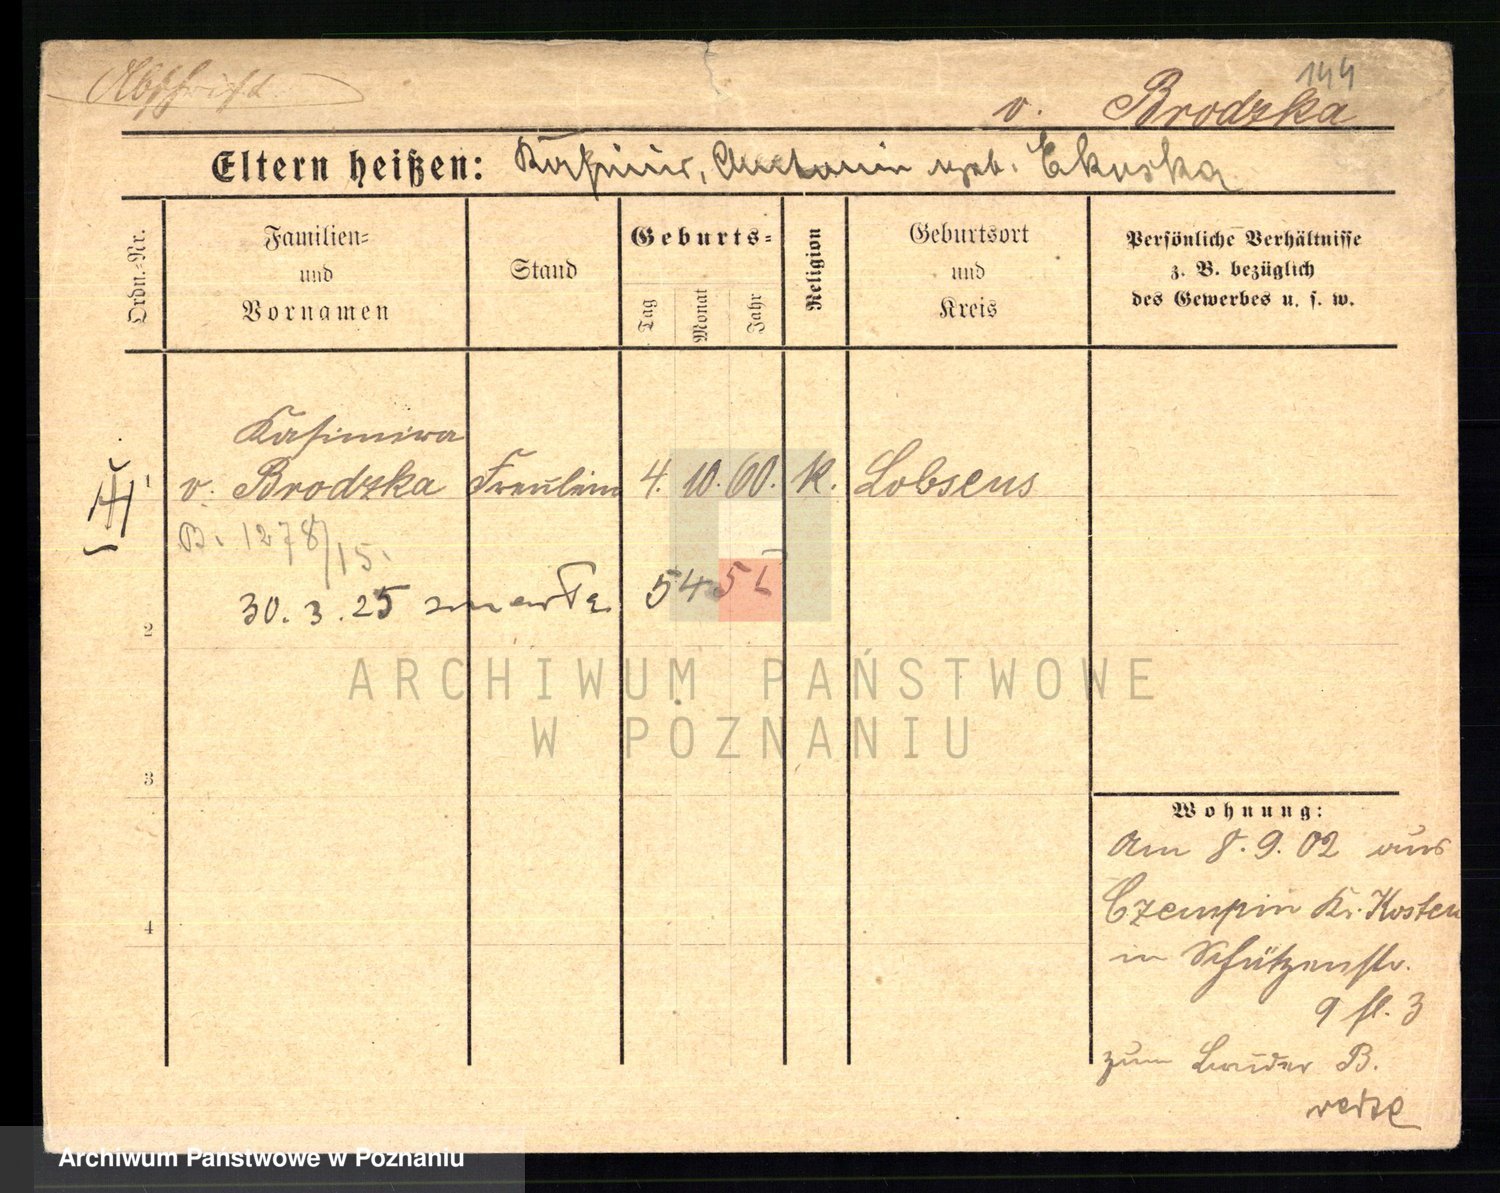 144
Abschrift
v. Brodzka
Eltern heißen: Kasimir, Antonin geb. Ekuska
Ordn.-Nr.
Familien-
und
Vornamen
Stand
Geburts-
Tag
Monat
Jahr
Religion
Geburtsort
und
Kreis
Persönliche Verhältnisse
z. B. bezüglich
des Gewerbes u. s. w.
Kasimira
1 v. Brodzka Freulein 4. 10. 60. K. Lobsens
B. 1278/15.
30. 3. 25 zmarła 54
2
3
4
ARCHIWUM PAŃSTWOWE
W POZNANIU
Wohnung:
Am 8. 9. 02 aus
Czempin Kr. Kosten
in Schützenstr.
9 fl. 3
zum Bruder B.
Archiwum Państwowe w Poznaniu